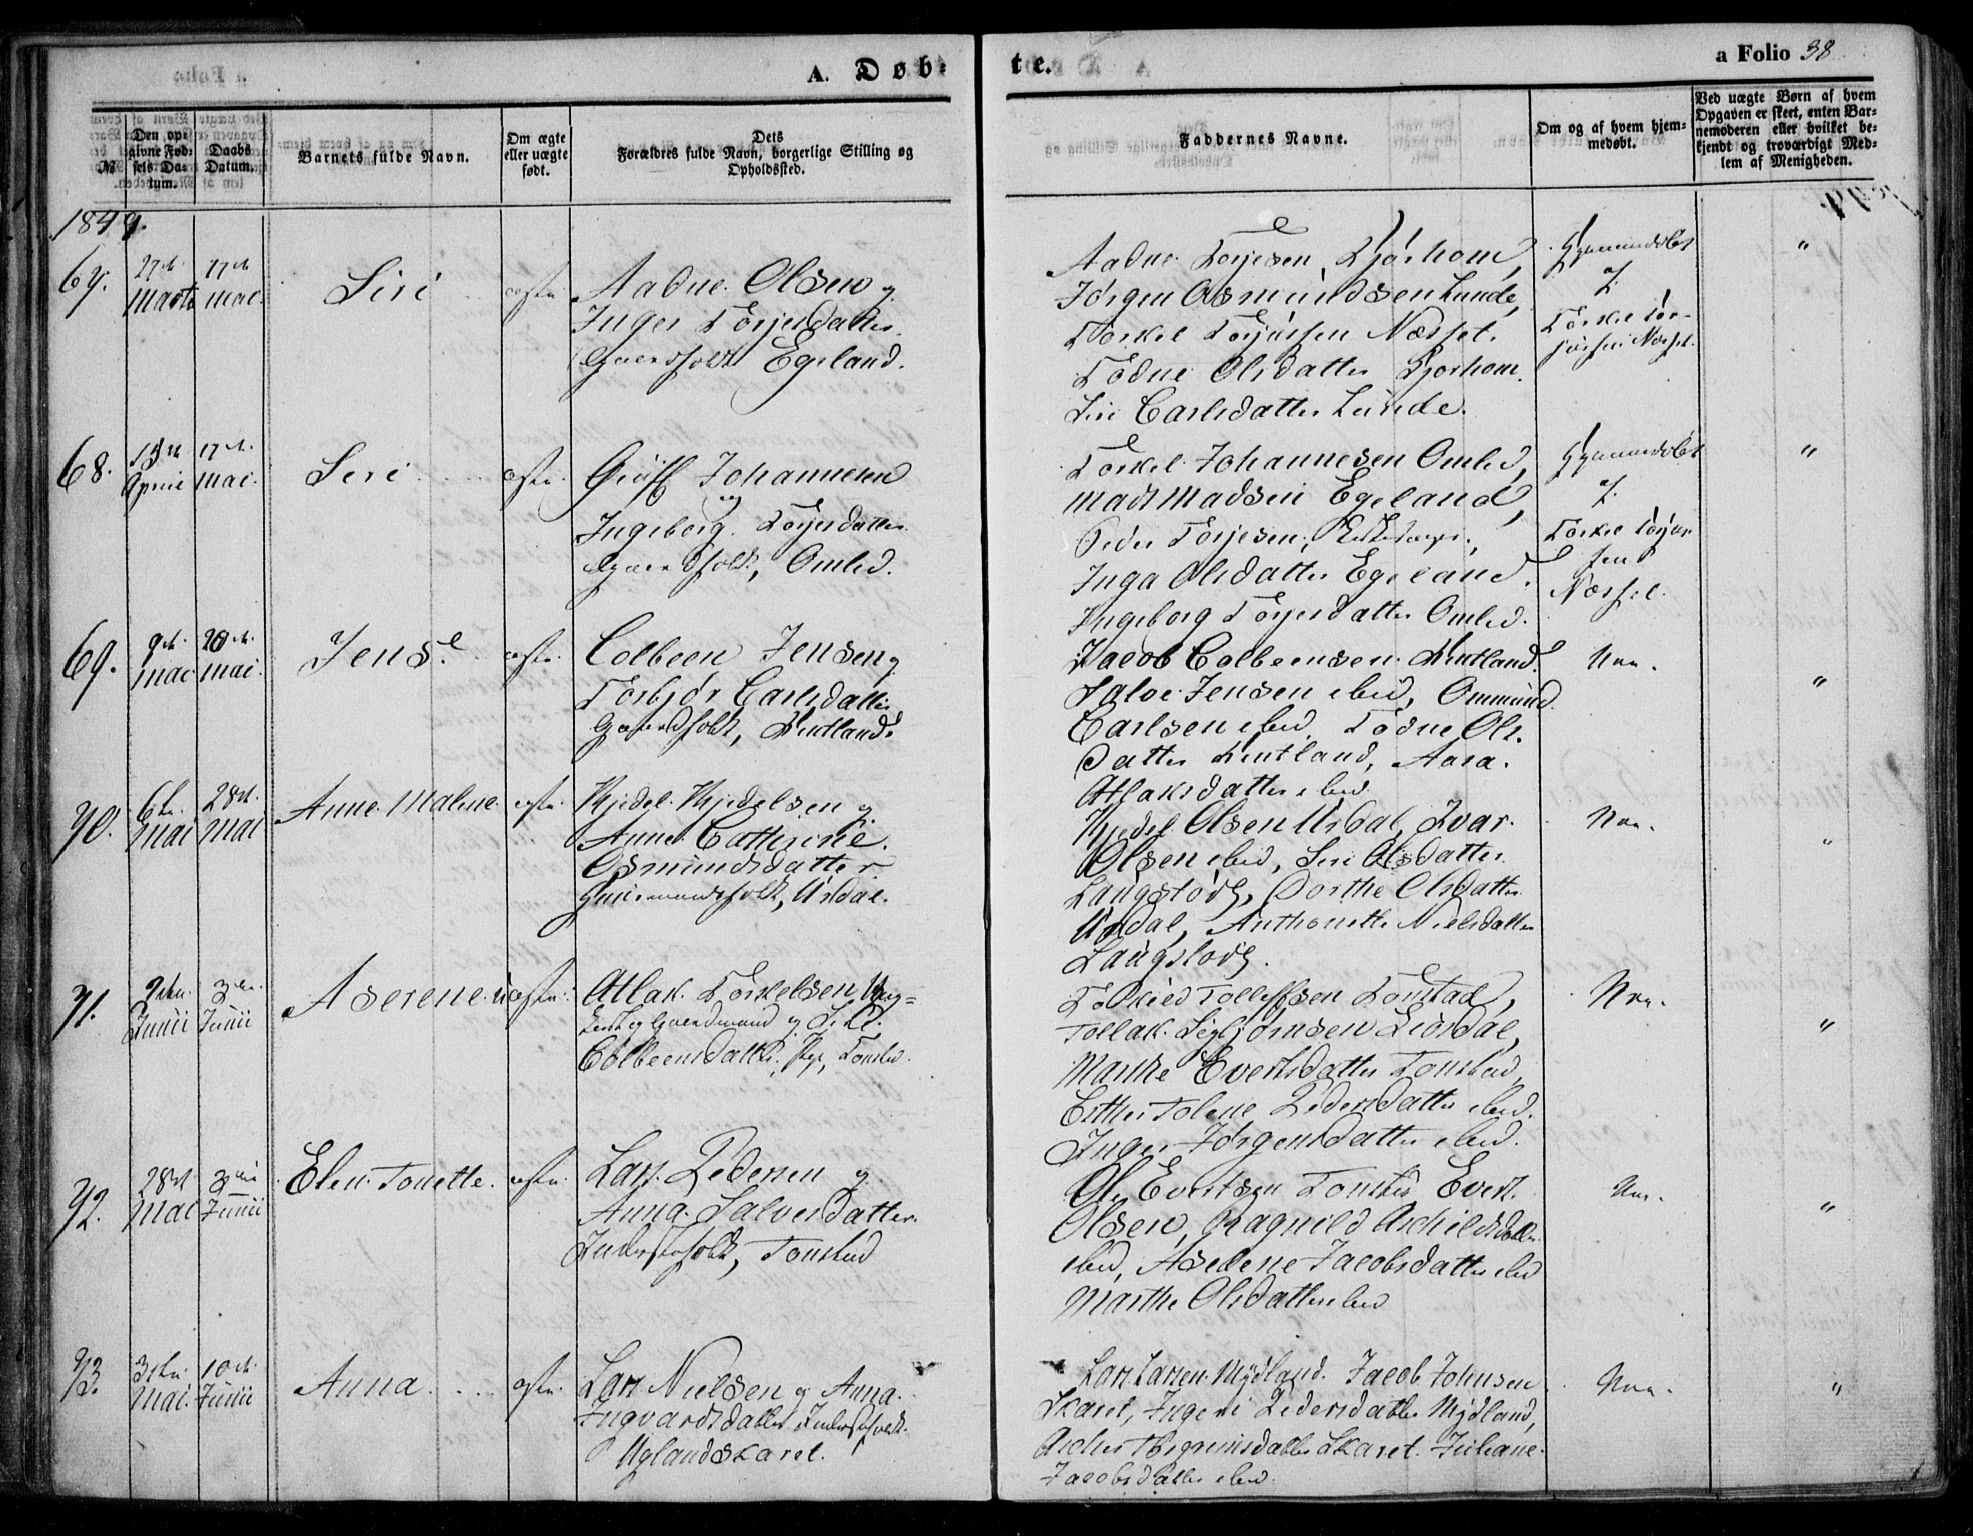 A. Døb-
te.
a Folio 38
№
Den op-
givne Fød-
sels Da-
tum.
Daabs
Datum.
Barnets fulde Navn.
Om ægte
eller uægte
født.
Dets
Forældres fulde Navn, borgerlige Stilling og
Opholdssted.
Faddernes Navne.
Om og af hvem hjem-
medøbt.
Ved uægte Børn af hvem
Opgaven er skeet, enten Bar-
nemoderen eller hvilket be-
kjendt og troværdigt Med-
lem af Menigheden.
1849.
67.
27de
Marts
17de
Mai.
Siri
ægte.
Aadne Olsen og
Inger Torjersdatter
Gaardfolk Egeland.
Aadne Torjesen Kjørhom,
Jørgen Osmundsen Lunde,
Torkel Torjussen Næsset.
Todne Olsdatter Kjorhom.
Siri Carlsdatter Lunde.
Hjemmedøbt
af
Torkel Tor-
jussen Næsset.
"
68.
Aprili
17de
Mai.
Seri
ægte.
Johannesen
og
Ingeborg Torjersdatter
Gaardfolk, Omlid.
Torkel Johannesen Omlid,
Mads Madsen Egeland,
Peder Torjesen,
Inga Olsdatter Egeland.
Ingeborg Torjersdatter Omlid.
Hjemmedøbt
af
Torkel Torjus
sen
Næsset.
"
69.
9de
Mai
20de
Mai.
Jens.
ægte.
Colbeen Jensen og
Torbjør Carlsdatter
Gaardfolk, Qvintland.
Jacob Colbeensen Qvintland.
Salve Jensen ibid, Ommund
Carlsen ibid. Todne Ols-
datter Qvintland, Aasa
Atlaksdatter ibid
Nei.
"
70.
6te
Mai
28de
Mai
Anne Malene
ægte.
Kjedel Kjedelsen og
Anne Cathrine
Osmundsdatter
Huusmandsfolk, Ursdal.
Kjedel Olsen Ursdal, Ivar
Olsen ibid, Siri Olsdatter
Dorthe Olsdatter
Ursdal, Anthonette Nielsdatter
Nei.
"
71.
Junii
3die
Junii
Aserene.
ægte.
Atlak Torkelsen
Gaardmand og
Colbeensdatter, Tonstad.
Tolleffsen Tonstad,
Tollak Sigbjørnsen Liosdal,
Marthe Evertsdatter Tonstad,
Esther Tolene Pedersdatter ibid.
Inger Jørgensdatter ibid.
Nei.
"
72.
28de
Mai
3die
Junii
Elen Tonette.
ægte.
Lars Pedersen og
Anna Salvesdatter.
Inderstfolk, Tonstad
Ole Evertsen Tonstad, Evert
Olsen, Ragnild Aschildsdatter
ibid, Aselene Jacobsdatter ibid
Marthe Olsdatter ibid
Nei.
"
73.
3die
Mai.
10de
Junii
Anna
ægte.
Lars Nielsen og Anna
Ingvardsdatter Inderstfolk.
Uglandskaret.
Lars Larsen Mydland. Jacob Johnsen
Skaret, Ingeri Pedersdatter Mydland,
Skaret. Juliane
Jacobsdatter ibid.
Nei.
"